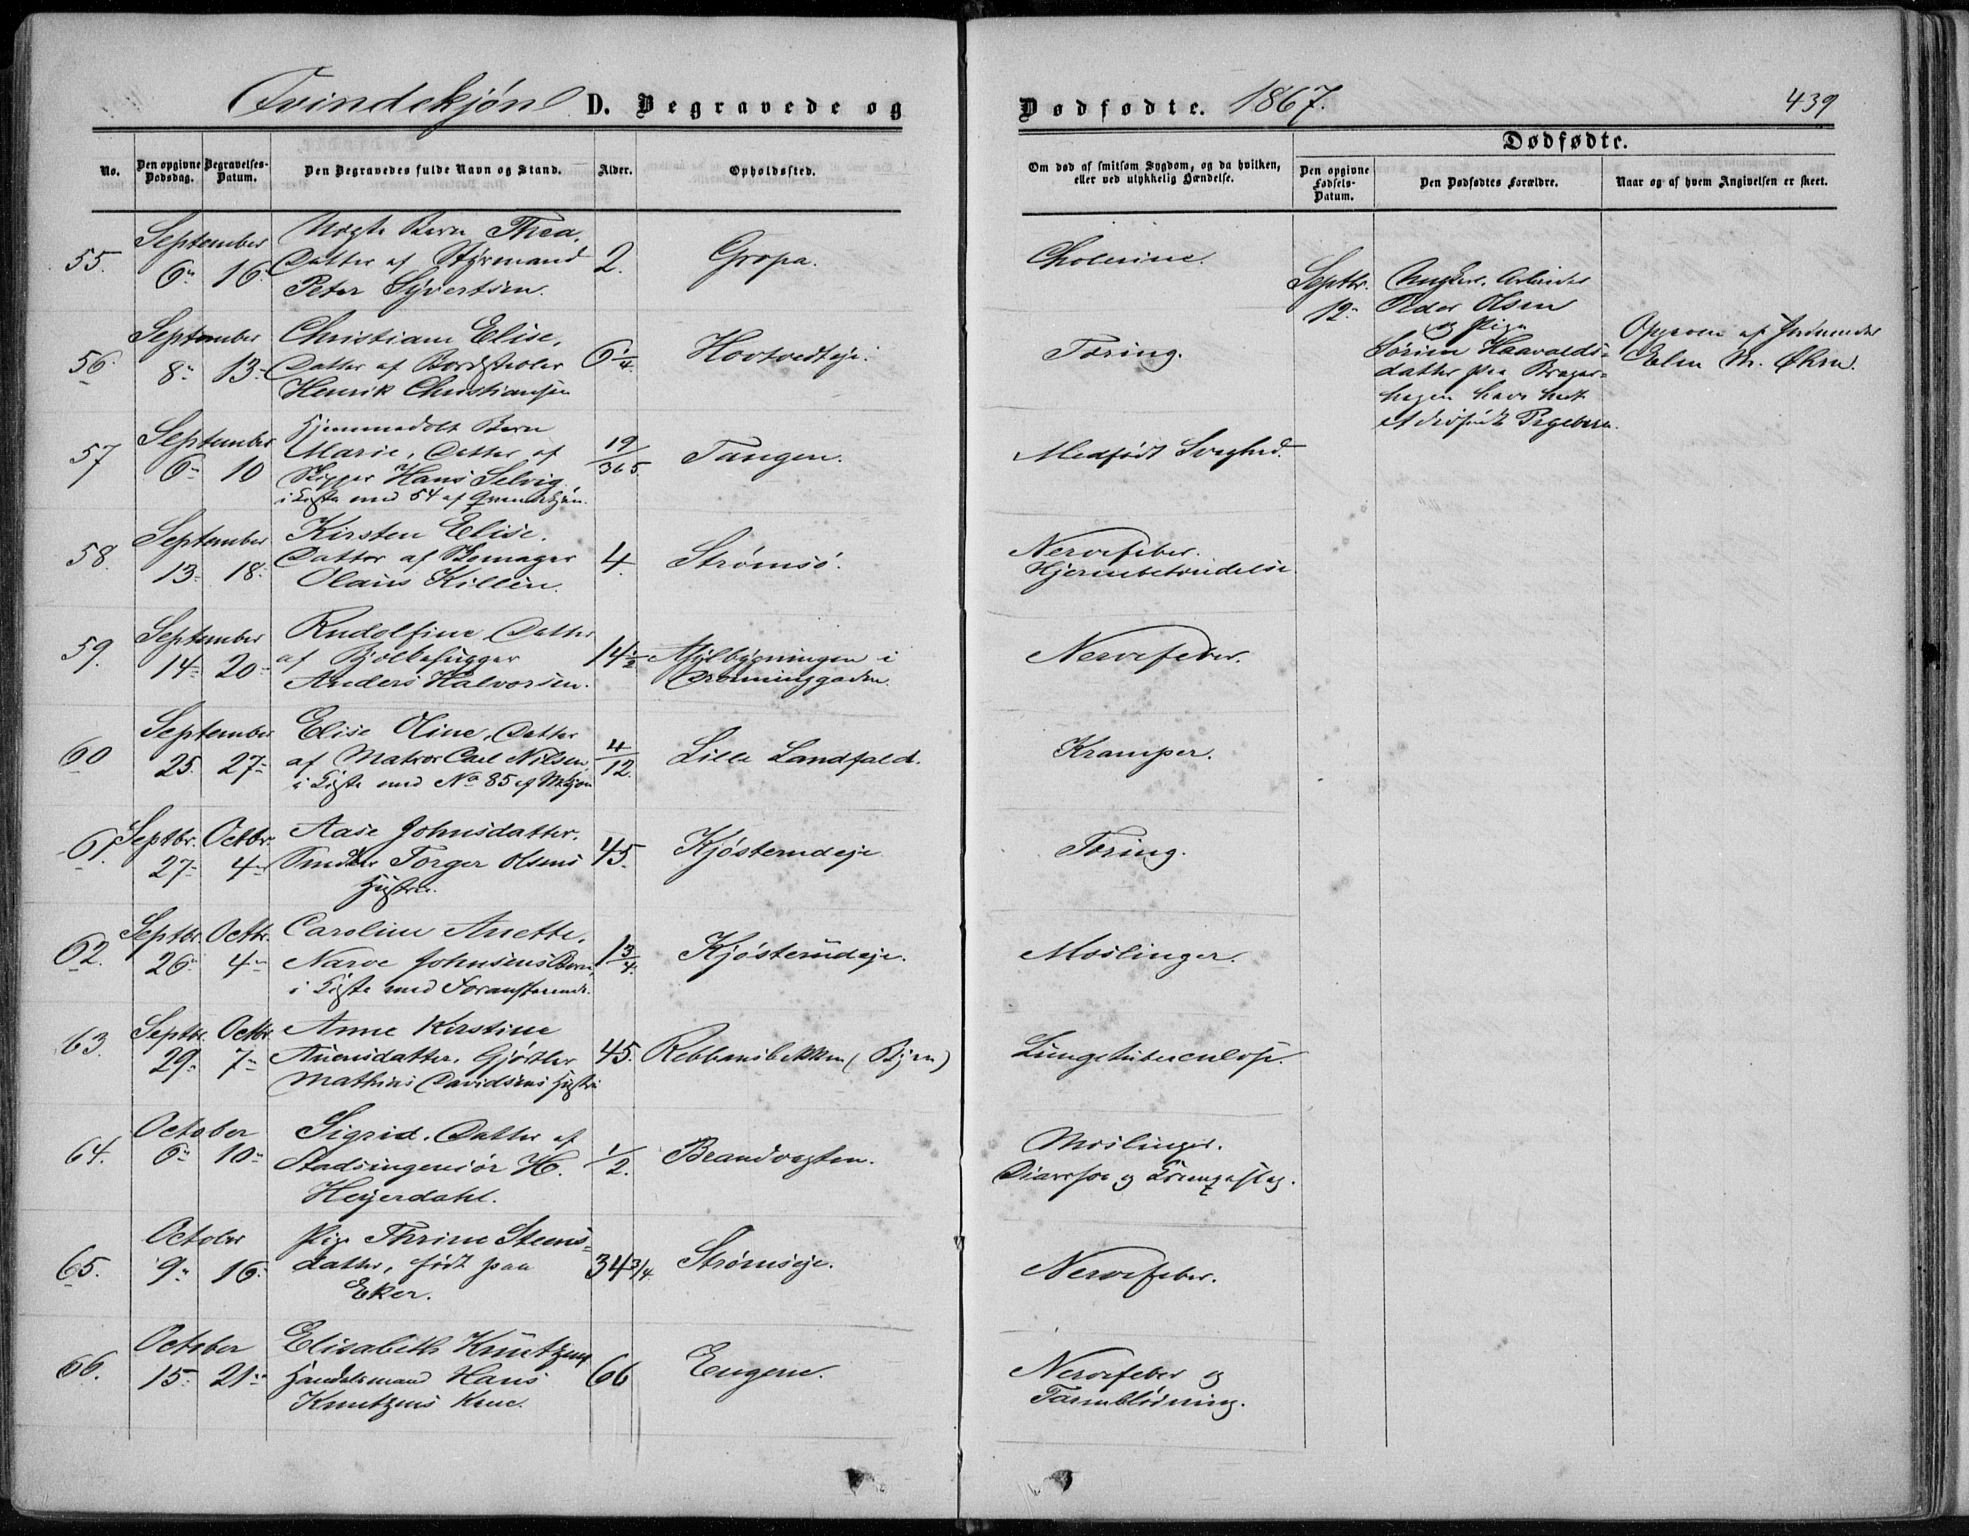 Qvindekjøn D. Begravede og
Dødfødte. 1867. 439
Dødfødte.
No. Den opgivne Dødsdag. Begravelses-Datum. Den Begravedes fulde Navn og Stand. Alder. Opholdssted.
Om død af smitsom Sygdom, og da hvilken, eller ved ulykkelig Hændelse. Den opgivne Fødsels-Datum. Den Dødfødtes Forældre. Naar og af hvem Angivelsen er skeet.
55. September 6 16 Barn Thea,
Datter af Styrmand
Peter Syvertsen. 2. Gropa. Cholerine.
Septbr. 12 Ungkarl Arbeider
Peder Olsen
og Pige
Haavalds-
datter paa Brager-
hagen have havt
et dødfødt Pigebarn.
Opgiven af
Elen M. Økern.
56. September 8 13 Christiane Elise,
Datter af
Henrik Christiansen 6 1/4 Hovtvedteje. Tæring.
57 September 6 10 Hjemmedøbt Barn
Marie, Datter af
Skipper Hans Selvig,
i Kiste med 54 af Qvindekjøn. 19/365. Tangen. Medfødt Svaghed.
58. September 13 18 Kirsten Elise.
Datter af
Olaus Killén. 4. Strømsø. Nervefeber.
Hjernebetændelse.
59. September 14 20 Rudolfine, Datter
af Bjelkehugger
Anders Halvorsen. 14 1/2 Asylbygningen i
Dronninggaden. Nervefeber.
60 September 25. 27 Elise Oline, Datter
af Matros Carl Nilsen,
i Kiste med No 85 af Mkjøn 4/12. Lille Landfald. Kramper.
61. Septbr. 27 Octbr. 4 Aase Johnsdatter.
Torger Olsens
Hustru. 45. Kjøsterudeje Tæring.
62. Septbr. 26 Octbr. 4 Caroline Anette,
Narve Johnsens Barn,
i Kiste med Foranstaaende. 1 3/4. Kjøsterudeje. Meslinger.
63. Septbr. 29. Octbr. 7 Anne Kirstine
Gjørtler
Mathias Davidsens Hustru 45. Rebbansbekken (Byen) Lungetuberculose.
64. October 6 10 Sigrid, Datter af
Stadsingeniør H.
Heyerdahl. 1/2. Brandvagten. Meslinger.
Diarrhoe og
65. October 9 16 Pige Thrine Steens-
datter, født paa
Eker. 34 3/4 Strømseje. Nervefeber.
66. October 15 21 Elisabeth Knutzen
Handelsmand Hans
Knutzens Kone. 66 Engene. Nervefeber og
Tarmblødning.